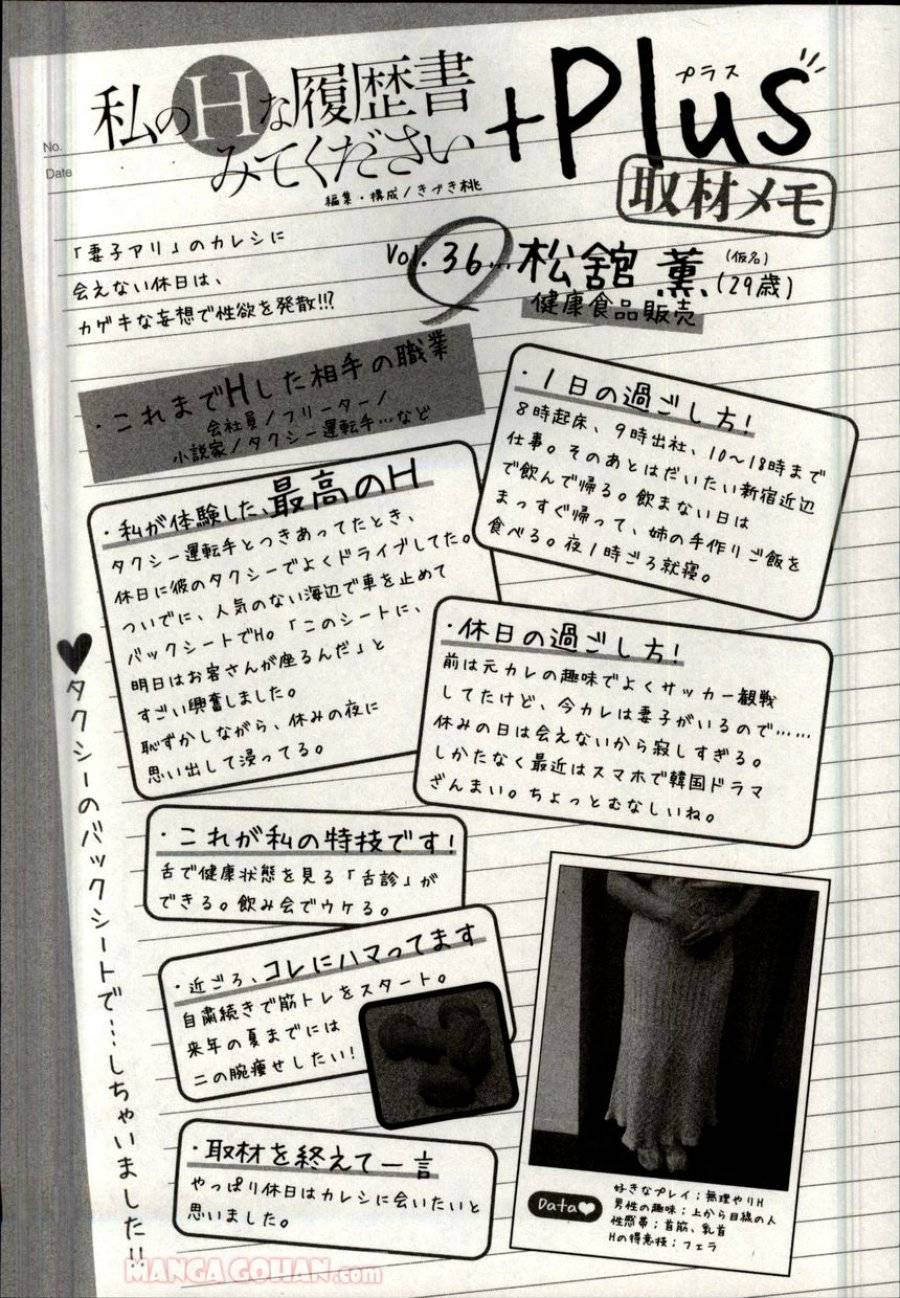 No.
Date
私のHな履歴書
みてください
+Plus
プラス
編集・構成/きづき桃
取材メモ
「妻子アリ」のカレシに
会えない休日は、
カゲキな妄想で性欲を発散!!?
Vol.36…松舘 薫(仮名)(29歳)
健康食品販売
・これまでHした相手の職業
会社員/フリーター/
小説家/タクシー運転手…など
・1日の過ごし方!
8時起床、9時出社、10〜18時まで
仕事。そのあとはだいたい新宿近辺
で飲んで帰る。飲まない日は
まっすぐ帰って、姉の手作りご飯を
食べる。夜1時ごろ就寝。
・私が体験した、最高のH
タクシー運転手とつきあってたとき、
休日に彼のタクシーでよくドライブしてた。
ついでに、人気のない海辺で車を止めて
バックシートでH。「このシートに、
明日はお客さんが座るんだ」と
すごい興奮しました。
恥ずかしながら、休みの夜に
思い出して浸ってる。
・休日の過ごし方!
前は元カレの趣味でよくサッカー観戦
してたけど、今カレは妻子がいるので……
休みの日は会えないから寂しすぎる。
しかたなく最近はスマホで韓国ドラマ
ざんまい。ちょっとむなしいね。
♥タクシーのバックシートで…しちゃいました!!
・これが私の特技です!
舌で健康状態を見る「舌診」が
できる。飲み会でウケる。
・近ごろ、コレにハマってます
自粛続きで筋トレをスタート。
来年の夏までには
二の腕痩せしたい!
・取材を終えて一言
やっぱり休日はカレシに会いたいと
思いました。
Data♥
好きなプレイ;無理やりH
男性の趣味;上から目線の人
性感帯;首筋、乳首
Hの得意技;フェラ
MANGAGOHAN.com